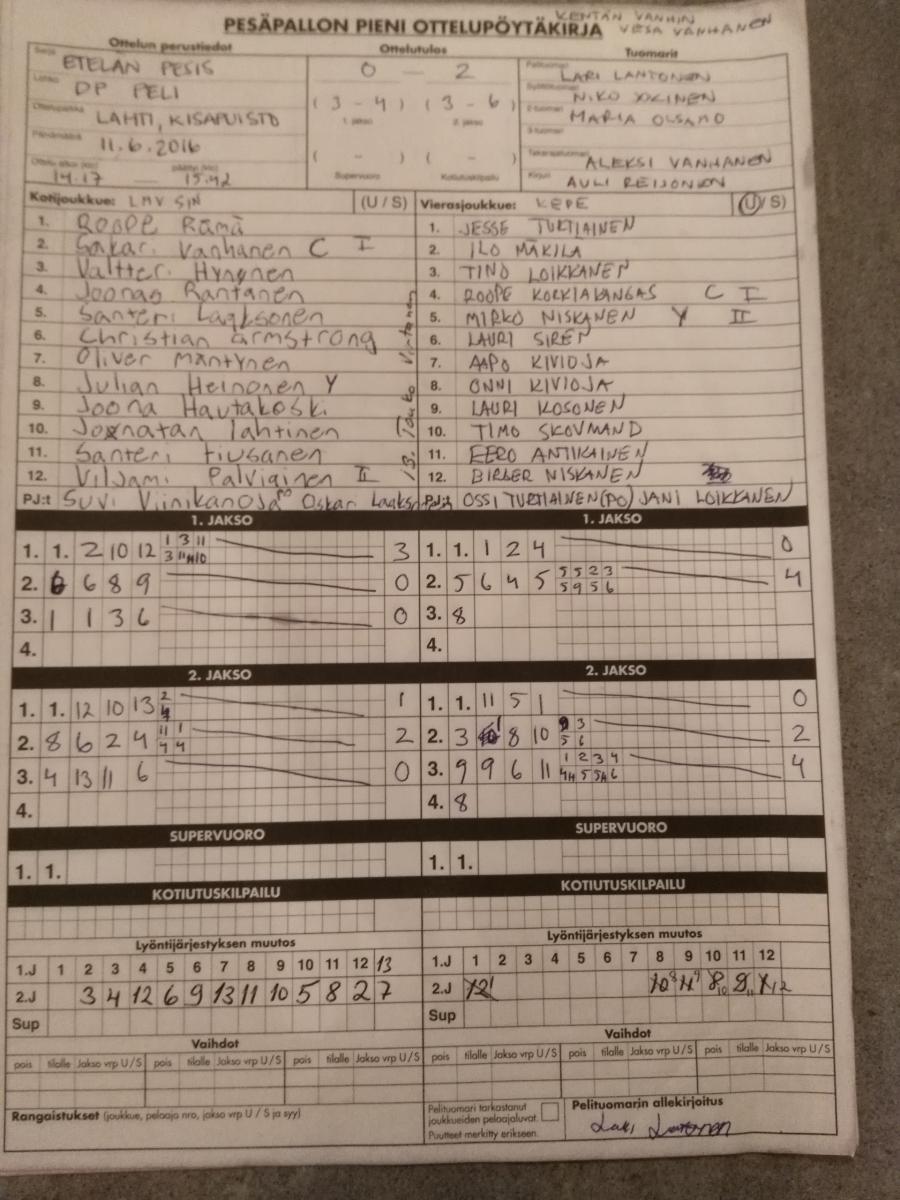 KENTÄN VANHIN
VESA VANHANEN
PESÄPALLON PIENI OTTELUPÖYTÄKIRJA
Ottelun perustiedot Ottelutulos Tuomarit
Sarja ETELÄN PESIS
Lohko DP PELI
Ottelupaikka LAHTI, KISAPUISTO
Päivämäärä 11.6.2016
14.17 — 15.42
0 — 2
( 3 - 4 ) ( 3 - 6 )
1. jakso 2. jakso
( - ) ( - )
Supervuoro Kotiutuskilpailu
Pelituomari LARI LANTONEN
Syöttötuomari NIKO
2-tuomari MARIA OLSAMO
3-tuomari
Takarajatuomari ALEKSI VANHANEN
Kirjuri AULI REIJONEN
Kotijoukkue: LMV SIN (U / S)
1. Roope Rämä
2. Sakari Vanhanen C I
3. Valtteri Hynynen
4. Joonas Rantanen
5. Santeri Laaksonen
6. Christian armstrong
7. Oliver mäntynen
8. Julian Heinonen Y
9. Joona Hautakoski
10. Joonatan lahtinen
11. Santeri tiusanen
12. Viljami Palviainen II
13.
PJ:t Suvi Viinikanoja PO Oskar
Vierasjoukkue: KEPE (U / S)
1. JESSE TURTIAINEN
2. ILO MÄKILA
3. TINO LOIKKANEN
4. ROOPE KORKIAKANGAS C I
5. MIRKO NISKANEN Y II
6. LAURI SIREN
7. AAPO KIVIOJA
8. ONNI KIVIOJA
9. LAURI KOSONEN
10. TIMO SKOVMAND
11. EERO ANTIKAINEN
12. BIRGER NISKANEN
PJ:t OSSI TURTIAINEN(PO) JANI LOIKKANEN
1. JAKSO
1. 1. 2 10 12 1 3 11 3
2. 6 6 8 9 0
3. 1 1 3 6 0
4.
1. JAKSO
1. 1. 1 2 4 0
2. 5 6 4 5 5 5 2 3 4
5 9 5 6
3. 8
4.
2. JAKSO
1. 1. 12 10 13 2 1
4
2. 8 6 2 4 11 1 2
4 4
3. 4 13 11 6 0
4.
2. JAKSO
1. 1. 11 5 1 0
2. 3 1 8 10 9 3 2
5 6
3. 9 9 6 11 1 2 3 4 4
4H 5 5H 6
4. 8
SUPERVUORO
1. 1.
SUPERVUORO
1. 1.
KOTIUTUSKILPAILU
KOTIUTUSKILPAILU
Lyöntijärjestyksen muutos
1.J 1 2 3 4 5 6 7 8 9 10 11 12 13
2.J 3 4 12 6 9 13 11 10 5 8 2 7
Sup
Vaihdot
pois tilalle Jakso vrp U/S pois tilalle Jakso vrp U/S pois tilalle Jakso vrp U/S
Rangaistukset (joukkue, pelaaja nro, jakso vrp U / S ja syy)
Lyöntijärjestyksen muutos
1.J 1 2 3 4 5 6 7 8 9 10 11 12
2.J
Sup
Vaihdot
pois tilalle Jakso vrp U/S pois tilalle Jakso vrp U/S pois tilalle Jakso vrp U/S
Pelituomari tarkastanut
joukkueiden pelaajaluvat.
Puutteet merkitty erikseen.
Pelituomarin allekirjoitus
Lari Lantonen